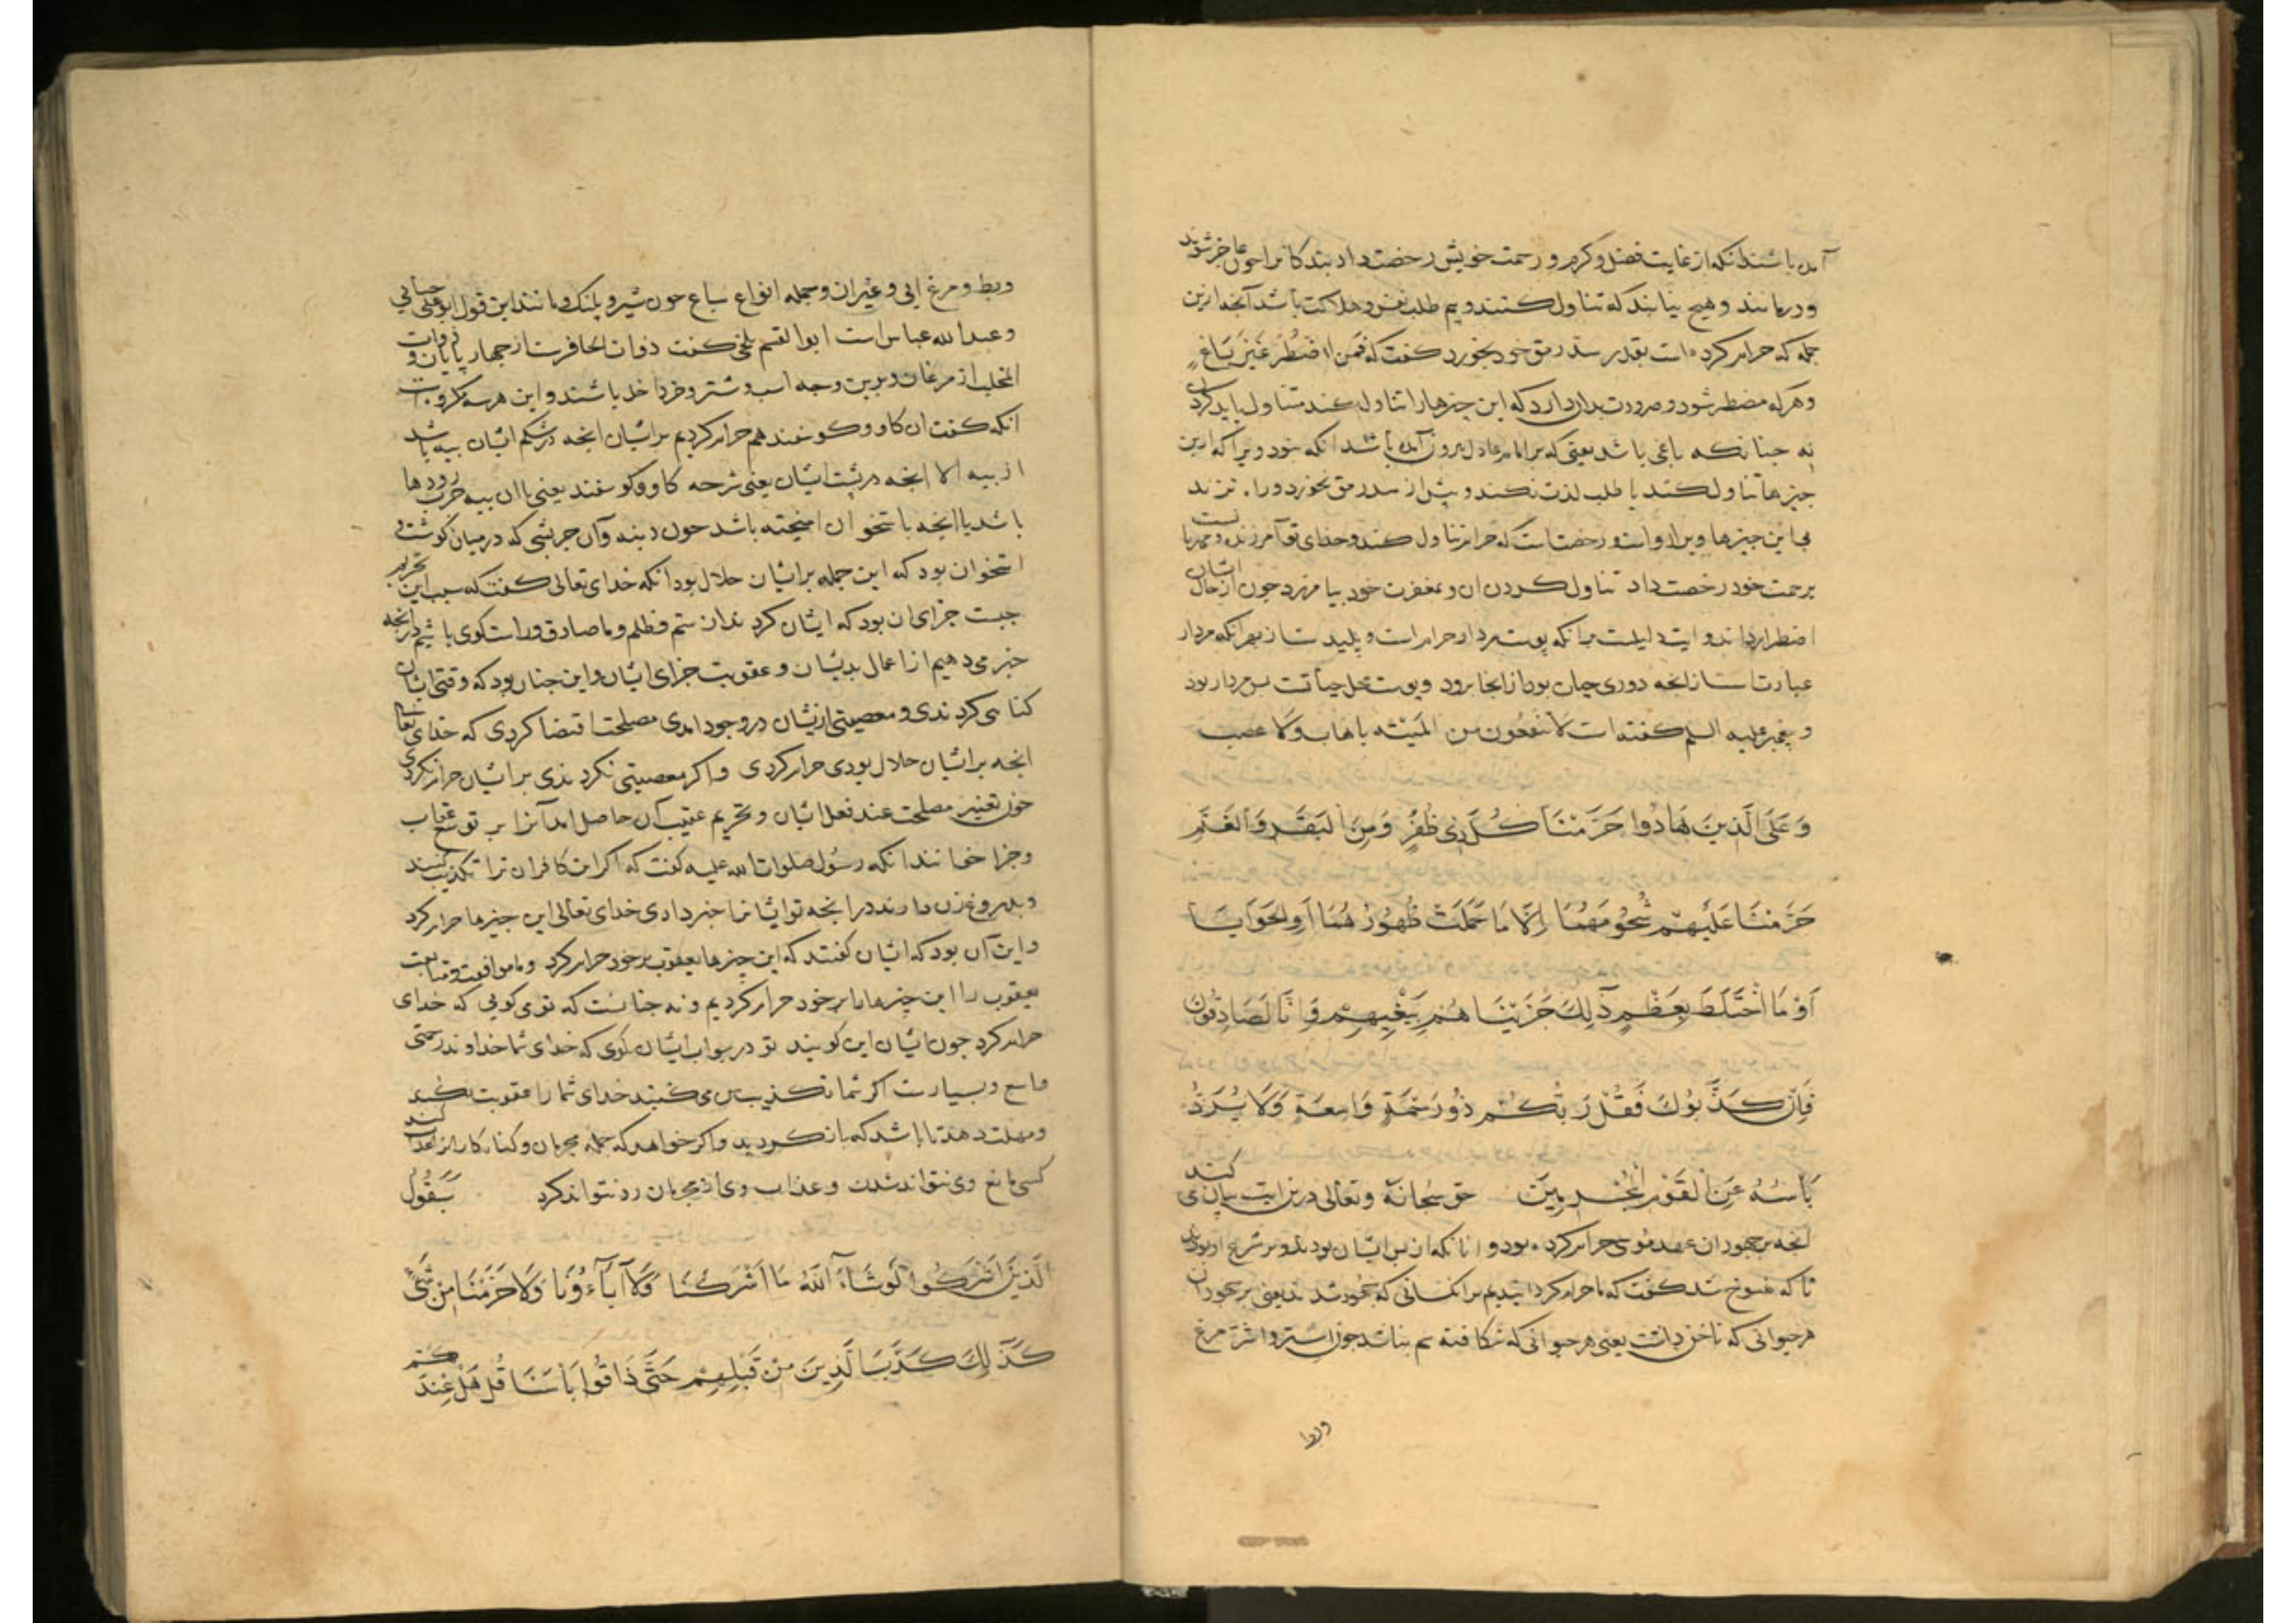 آمده باشند انکه از غایت فضل و کرم و رحمت خویش رخصت داد بندکانرا جون عاجز شوند
و درمانند و هیح نیابند که تناول کنند و بیم طلب نفس و هلاکت باشد آنجه ازین
جمله که حرام کرده است بقدر سد رمق خود بخورد کفت که فَمَنِ اضْطُرَّ غَیْرَ بَاغٍ
و هرکه مضطر شود و ضرورت بدان دارد که این جیزها را تناول کند متناول باید کردن
نه جنانکه باغی باشد یعنی که بر امام عادل بیرون آمده باشد انکه بود ویرا که ازین
جیزها تناول کند یا طلب لذت نکند و بیش از سد رمق نخورد و را
بی این جیزها ویرا رواست و رخصتست که حرام تناول کند و خدای تع آمرزنده و مهربانست
برحمت خود رخصت داد تناول کردن ان و بمغفرت خود بیامرزد جون از حال ایشان
اضطرار داند و ایت دلیلست برانکه پوست مردار حرام است و پلید ست از بهر انکه مردار
عبارت است از انجه دوری حیات بود از انجا برود و پوست محل حیاتست بس مردار بود
و بیغمبر علیه السلم کفته است لا تنتفعون من المَیْتَه باهاب ولا عصب
وَعَلَی الَّذِینَ هَادُوا حَرَّمْنَا کُلَّ ذِی ظُفُرٍ وَمِنَ البَقَرِ وَالغَنَمِ
حَرَّمْنَا عَلَیْهِمْ شُحُومَهُمَا اِلَّا مَا حَمَلَتْ ظُهُورُهُمَا اَوِ الحَوَایَا
اَوْ مَا اخْتَلَطَ بِعَظْمٍ ذَلِکَ جَزَیْنَاهُمْ بِبَغْیِهِمْ وَاِنَّا لَصَادِقُونَ
فَاِنْ کَذَّبُوکَ فَقُلْ رَبُّکُمْ ذُو رَحْمَةٍ وَاسِعَةٍ وَلَا یُرَدُّ
بَأسُهُ عَنِ القَوْمِ المُجْرِمِینَ حق سبحانه و تعالی درین ایت بیان می کند
آنجه بر جهودان عهد موسی حرام کرده بود و انانکه از پس ایشان بودند و بر شرع او بودند
تا که منسوخ شد کفت که ما حرام کردانیدیم بر انکسانی که جهود شدند یعنی بر جهودان
هر حیوانی که ناخن داشت یعنی هر حیوانی که شکافته سم نباشد جون اشتر و اشتر مرغ
و بط و مرغ ابی و غیر ان و جمله انواع سباع جون شیر و پلنک و مانند این قول ابو علی جبایی
و عبد الله عباس است ابو القسم بلخی کفت ذوات الحافرست از جهار پایان و ذوات
المخلب از مرغان و برین وجه اسب و شتر و خر داخل باشند و این هر سه مکروهات
انکه کفت از کاو و کوسفند هم حرام کردیم بر ایشان انجه در شکم ایشان بیه باشد
از بیه الا انجه در پشت ایشان یعنی شرحه کاو و کوسفند یعنی با ان بیه جرب رودها
باشد یا انجه باستخوان امیخته باشد جون دنبه و آن جربشی که در میان کوشت و
استخوان بود که این جمله بر ایشان حلال بود انکه خدای تعالی کفت که سبب این تحریم
جیست جزای ان بود که ایشان کردند از ستم و ظلم و ما صادق و راست کوی باشیم در انجه
خبر می دهیم از اعمال بد یشان و عقوبت جزای ایشان و این جنان بود که وقتی ایشان
کناهی کردندی و معصیتی ازیشان در وجود امدی مصلحت اقتضا کردی که خدای تعالی
انجه بر ایشان حلال بودی حرام کردی و اکر معصیتی نکردندی بر ایشان حرام نکردی
جون تغییر مصلحت عند فعل ایشان و تحریم عقیب آن حاصل امد آنرا بر توسع عقاب
و جزا خوانند انکه رسول صلوات الله علیه کفت که اکر این کافران ترا تکذیب کنند
و بدروغ زن دارند در انجه تو ایشانرا خبر دادی خدای تعالی این جیزها حرام کرد
و این آن بود که ایشان کفتند که این جیزها یعقوب بر خود حرام کرد و ما موافقت و متابعت
یعقوب را این جیزها ما بر خود حرام کردیم و نه جنانست که تو می کویی که خدای
حرام کرد جون ایشان این کویند تو در جواب ایشان کوی که خدای شما خداوند رحمتی
واسع و بسیارست اکر شما تکذیب من می کنید خدای شما را عقوبت نکند
و مهلت دهد تا باشد که باز کردید و اکر خواهد که جمله مجرمان و کناه کارانرا عذاب کند
کسی مانع وی نتواند شدن و عذاب وی از مجرمان رد نتواند کرد سَیَقُولُ
الَّذِینَ اَشْرَکُوا لَوْ شَاءَ اللهُ مَا اَشْرَکْنَا وَلَا آبَاءُونَا وَلَا حَرَّمْنَا مِنْ شَیْءٍ
کَذَلِکَ کَذَّبَ الَّذِینَ مِنْ قَبْلِهِمْ حَتَّی ذَاقُوا بَأسَنَا قُلْ هَلْ عِنْدَکُمْ